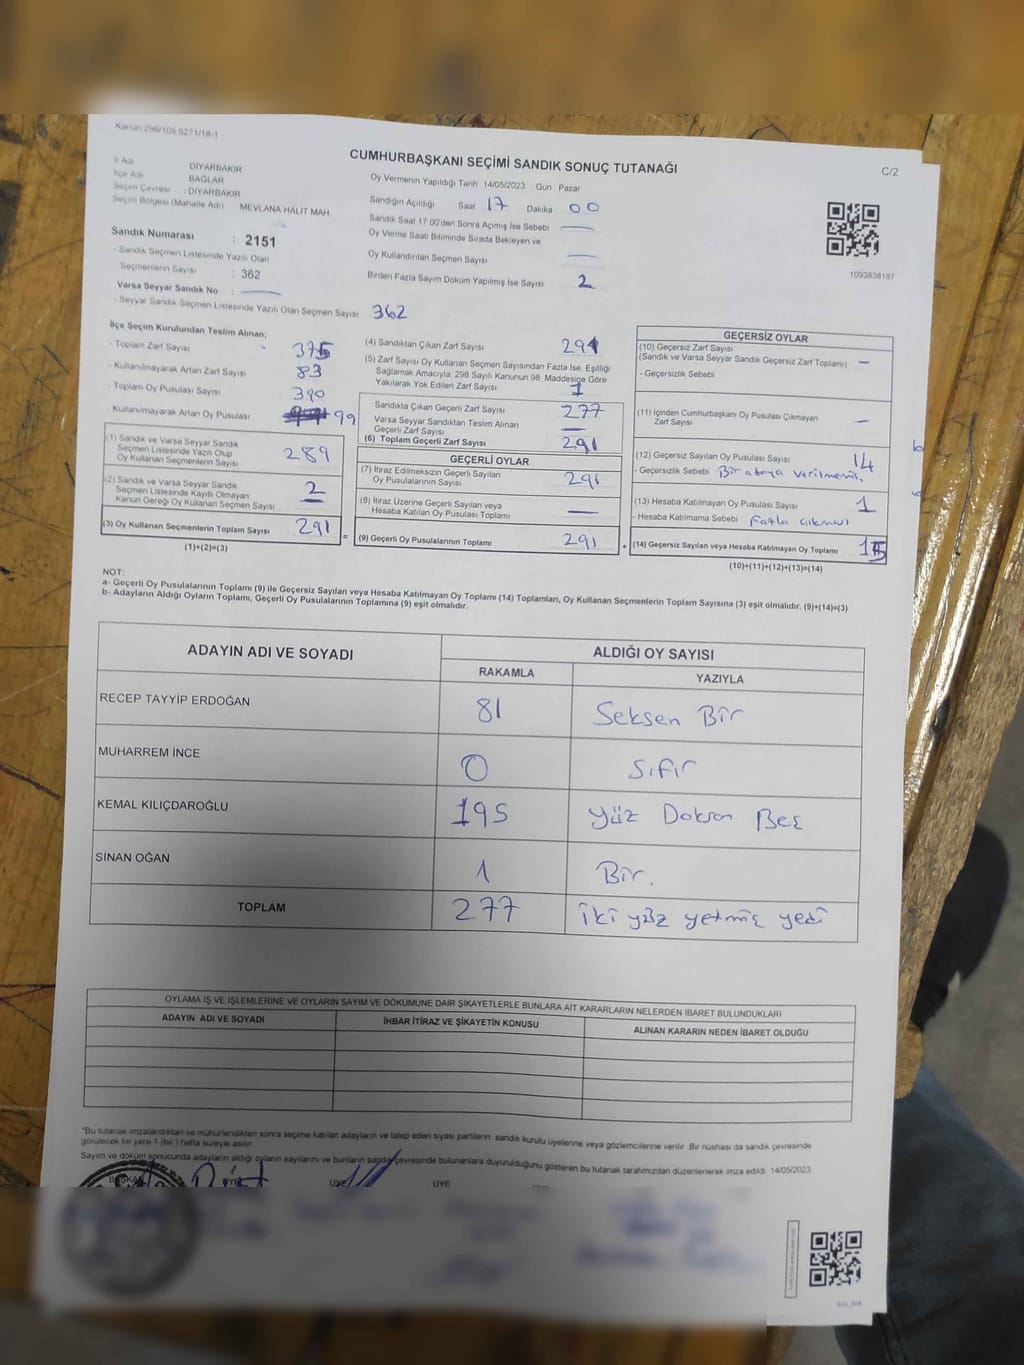 Kanun 298/105,6271/18-1
CUMHURBAŞKANI SEÇİMİ SANDIK SONUÇ TUTANAĞI
C/2
İl Adı DİYARBAKIR
İlçe Adı BAĞLAR
Seçim Çevresi : DİYARBAKIR
Seçim Bölgesi (Mahalle Adı) MEVLANA HALİT MAH.
Sandık Numarası : 2151
- Sandık Seçmen Listesinde Yazılı Olan
Seçmenlerin Sayısı : 362
Varsa Seyyar Sandık No :
- Seyyar Sandık Seçmen Listesinde Yazılı Olan Seçmen Sayısı 362
Oy Vermenin Yapıldığı Tarih 14/05/2023 Gün : Pazar
Sandığın Açıldığı Saat 17 Dakika 00
Sandık Saat 17:00'den Sonra Açmış İse Sebebi
Oy Verme Saati Bitiminde Sırada Bekleyen ve
Oy Kullandırılan Seçmen Sayısı
Birden Fazla Sayım Döküm Yapılmış İse Sayısı 2
1093838187
İlçe Seçim Kurulundan Teslim Alınan;
- Toplam Zarf Sayısı 375
- Kullanılmayarak Artan Zarf Sayısı 83
- Toplam Oy Pusulası Sayısı 390
- Kullanılmayarak Artan Oy Pusulası 99
(1) Sandık ve Varsa Seyyar Sandık
Seçmen Listesinde Yazılı Olup
Oy Kullanan Seçmenlerin Sayısı 289
(2) Sandık ve Varsa Seyyar Sandık
Seçmen Listesinde Kayıtlı Olmayan
Kanun Gereği Oy Kullanan Seçmen Sayısı 2
(3) Oy Kullanan Seçmenlerin Toplam Sayısı 291
=
(1)+(2)=(3)
(4) Sandıktan Çıkan Zarf Sayısı 291
(5) Zarf Sayısı Oy Kullanan Seçmen Sayısından Fazla İse, Eşitliği
Sağlamak Amacıyla, 298 Sayılı Kanunun 98. Maddesine Göre
Yakılarak Yok Edilen Zarf Sayısı 1
Sandıkta Çıkan Geçerli Zarf Sayısı 277
Varsa Seyyar Sandıktan Teslim Alınan
Geçerli Zarf Sayısı
(6) Toplam Geçerli Zarf Sayısı 291
GEÇERLİ OYLAR
(7) İtiraz Edilmeksizin Geçerli Sayılan
Oy Pusulalarının Sayısı 291
(8) İtiraz Üzerine Geçerli Sayılan veya
Hesaba Katılan Oy Pusulası Toplamı
(9) Geçerli Oy Pusulalarının Toplamı 291
+
GEÇERSİZ OYLAR
(10) Geçersiz Zarf Sayısı
(Sandık ve Varsa Seyyar Sandık Geçersiz Zarf Toplamı) -
- Geçersizlik Sebebi
(11) İçinden Cumhurbaşkanı Oy Pusulası Çıkmayan
Zarf Sayısı -
(12) Geçersiz Sayılan Oy Pusulası Sayısı 14
- Geçersizlik Sebebi
(13) Hesaba Katılmayan Oy Pusulası Sayısı 1
- Hesaba Katılmama Sebebi Fazla çıkması
(14) Geçersiz Sayılan veya Hesaba Katılmayan Oy Toplamı 15
(10)+(11)+(12)+(13)=(14)
NOT:
a- Geçerli Oy Pusulalarının Toplamı (9) ile Geçersiz Sayılan veya Hesaba Katılmayan Oy Toplamı (14) Toplamları, Oy Kullanan Seçmenlerin Toplam Sayısına (3) eşit olmalıdır. (9)+(14)=(3)
b- Adayların Aldığı Oyların Toplamı, Geçerli Oy Pusulalarının Toplamına (9) eşit olmalıdır.
ADAYIN ADI VE SOYADI ALDIĞI OY SAYISI
RAKAMLA YAZIYLA
RECEP TAYYİP ERDOĞAN 81 Seksen Bir
MUHARREM İNCE 0 Sıfır
KEMAL KILIÇDAROĞLU 195 Yüz Doksan Beş
SİNAN OĞAN 1 Bir.
TOPLAM 277 iki yüz yetmiş yedi
OYLAMA İŞ VE İŞLEMLERİNE VE OYLARIN SAYIM VE DÖKÜMÜNE DAİR ŞİKAYETLERLE BUNLARA AİT KARARLARIN NELERDEN İBARET BULUNDUKLARI
ADAYIN ADI VE SOYADI İHBAR İTİRAZ VE ŞİKAYETİN KONUSU ALINAN KARARIN NEDEN İBARET OLDUĞU
"Bu tutanak imzalandıktan ve mühürlendikten sonra seçime katılan adayların ve talep eden siyasi partilerin sandık kurulu üyelerine veya gözlemcilerine verilir. Bir nüshası da sandık çevresinde
görülecek bir yere 1 (bir) hafta süreyle asılır.
Sayım ve döküm sonucunda adayların aldığı oyların sayılarını ve bunların sandık çevresinde bulunanlara duyurulduğunu gösteren bu tutanak tarafımızdan düzenlenerek imza edildi. 14/05/2023
BAŞKAN ÜYE ÜYE ÜYE